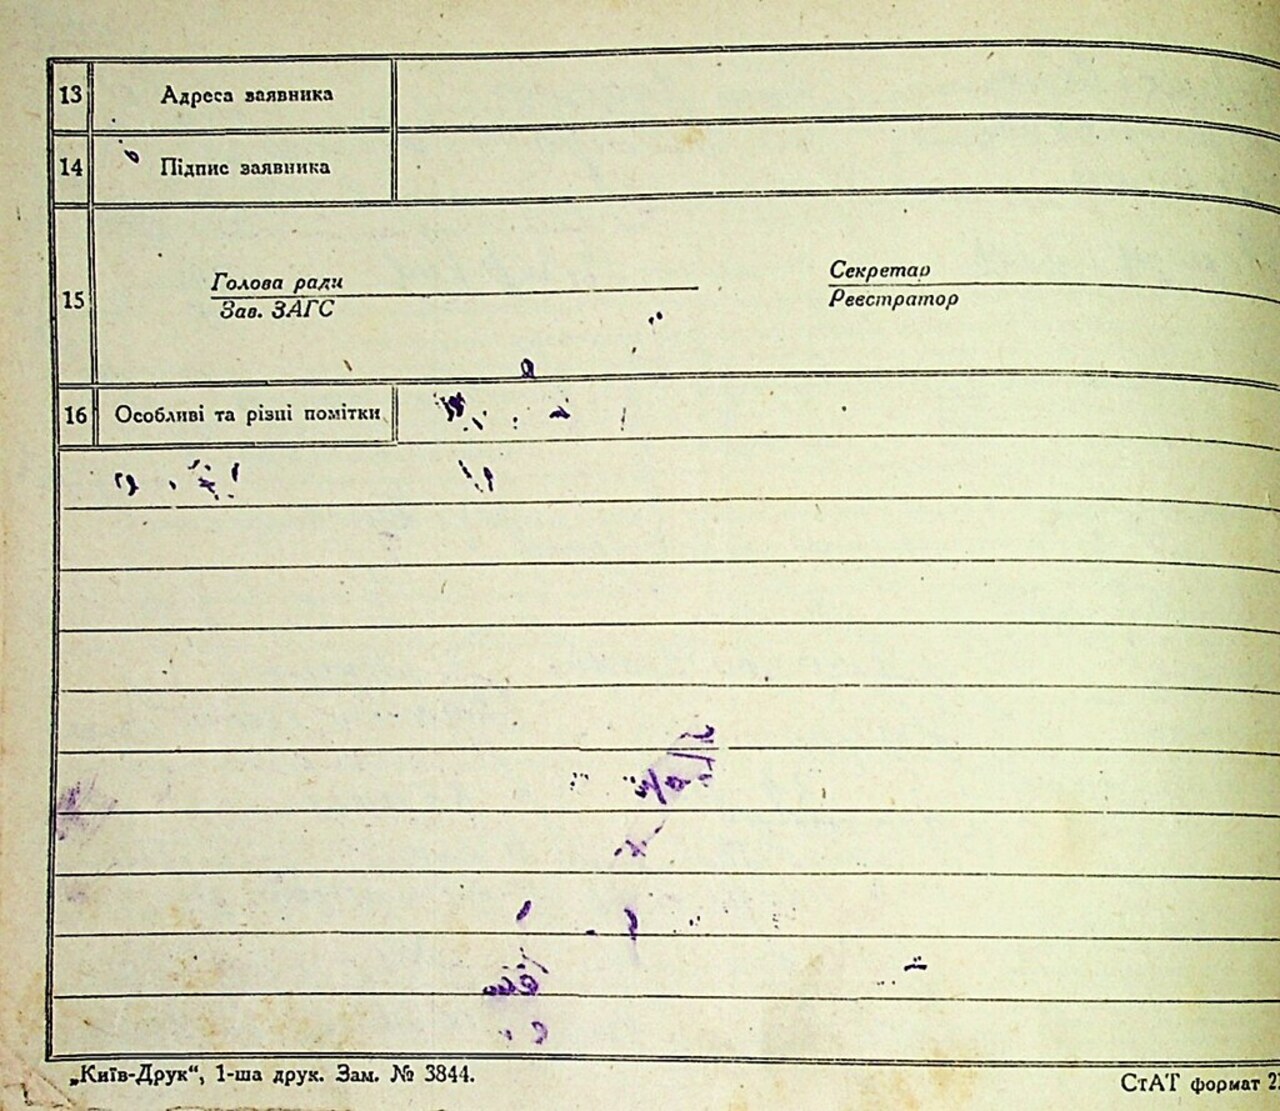 13 Адреса заявника
14 Підпис заявника
15 Голова ради Секретар
Зав. ЗАГС Реєстратор
16 Особливі та різні помітки
„Київ-Друк“, 1-ша друк. Зам. № 3844. СтАТ формат